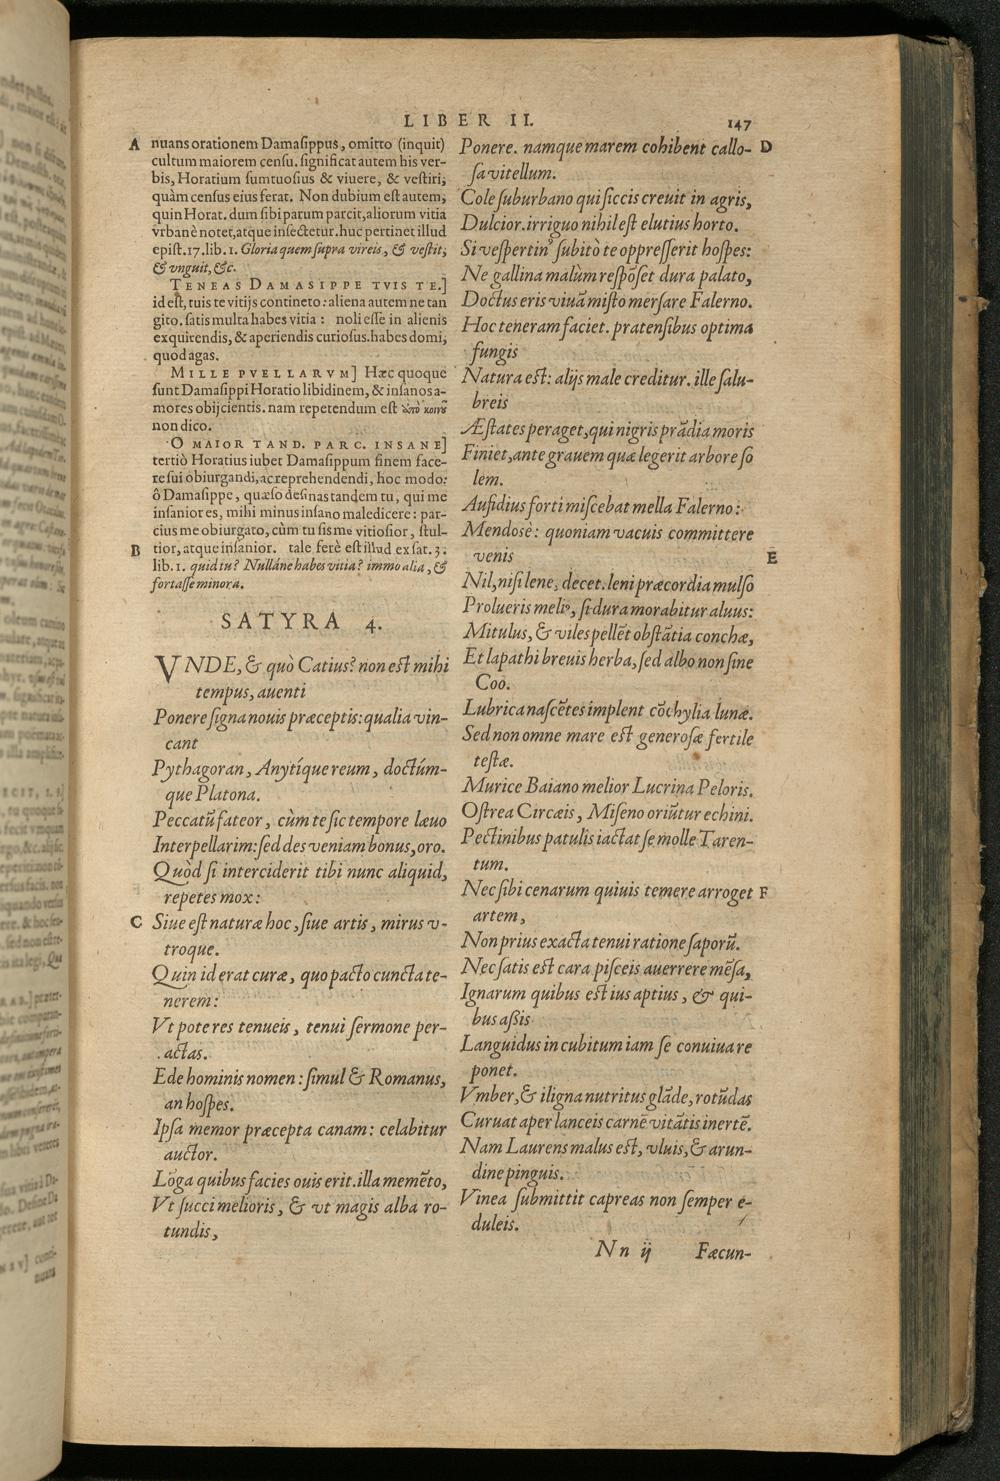 LIBER II. 147
A nuans orationem Damasippus, omitto (inquit)
cultum maiorem censu. significat autem his ver-
bis, Horatium sumtuosius & viuere, & vestiri,
quàm census eius ferat. Non dubium est autem,
quin Horat. dum sibi parum parcit, aliorum vitia
vrbanè notet, atque insectetur. huc pertinet illud
epist. 17. lib. 1. Gloria quem supra vireis, & vestit,
& vnguit, &c.
TENEAS DAMASIPPE TVIS TE.]
id est, tuis te vitijs contineto: aliena autem ne tan
gito. satis multa habes vitia: noli esse in alienis
exquirendis, & aperiendis curiosus. habes domi,
quod agas.
MILLE PVELLARVM] Hæc quoque
sunt Damasippi Horatio libidinem, & insanos a-
mores obijcientis. nam repetendum est ἀπὸ κοινοῦ
non dico.
O MAIOR TAND. PARC. INSANE]
tertiò Horatius iubet Damasippum finem face-
re sui obiurgandi, ac reprehendendi, hoc modo:
ô Damasippe, quæso desinas tandem tu, qui me
insanior es, mihi minus insano maledicere: par-
cius me obiurgato, cùm tu sis me vitiosior, stul-
B tior, atque insanior. tale ferè est illud ex sat. 3.
lib. 1. quid tu? Nulláne habes vitia? immo alia, &
fortasse minora.
SATYRA 4.
VNDE, & quò Catius? non est mihi
tempus, auenti
Ponere signa nouis præceptis: qualia vin-
cant
Pythagoran, Anytíque reum, doctúm-
que Platona.
Peccatũ fateor, cùm te sic tempore læuo
Interpellarim: sed des veniam bonus, oro.
Quòd si interciderit tibi nunc aliquid,
repetes mox:
C Siue est naturæ hoc, siue artis, mirus v-
troque.
Quin id erat curæ, quo pacto cuncta te-
nerem:
Vt pote res tenueis, tenui sermone per-
actas.
Ede hominis nomen: simul & Romanus,
an hospes.
Ipsa memor præcepta canam: celabitur
auctor.
Lõga quibus facies ouis erit. illa memẽto,
Vt succi melioris, & vt magis alba ro-
tundis,
Ponere. namque marem cohibent callo- D
sa vitellum.
Cole suburbano qui siccis creuit in agris,
Dulcior. irriguo nihil est elutius horto.
Si vespertinꝰ subitò te oppresserit hospes:
Ne gallina malùm respõset dura palato,
Doctus eris viuã misto mersare Falerno.
Hoc teneram faciet. pratensibus optima
fungis
Natura est: alijs male creditur. ille salu-
breis
Æstates peraget, qui nigris prãdia moris
Finiet, ante grauem quæ legerit arbore so
lem.
Aufidius forti miscebat mella Falerno:
Mendosè: quoniam vacuis committere
venis E
Nil, nisi lene, decet. leni præcordia mulso
Prolueris meliꝰ, si dura morabitur aluus:
Mitulus, & viles pellẽt obstãtia conchæ,
Et lapathi breuis herba, sed albo non sine
Coo.
Lubrica nascẽtes implent cõchylia lunæ.
Sed non omne mare est generosæ fertile
testæ.
Murice Baiano melior Lucrina Peloris.
Ostrea Circæis, Miseno oriũtur echini.
Pectinibus patulis iactat se molle Taren-
tum.
Nec sibi cenarum quiuis temere arroget F
artem,
Non prius exacta tenui ratione saporũ.
Nec satis est cara pisceis auerrere mẽsa,
Ignarum quibus est ius aptius, & qui-
bus assis
Languidus in cubitum iam se conuiua re
ponet.
Vmber, & iligna nutritus glãde, rotũdas
Curuat aper lanceis carnẽ vitãtis inertẽ.
Nam Laurens malus est, vluis, & arun-
dine pinguis.
Vinea submittit capreas non semper e-
duleis.
Nn ij Fæcun-